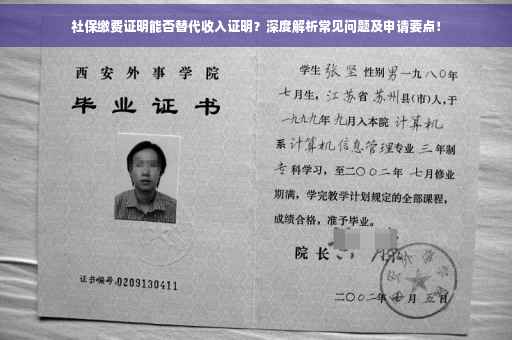 社保缴费证明能否替代收入证明？深度解析常见问题及申请要点！
西安外事学院
毕业证书
证书编号:0209130411
学生 张坚 性别 男 一九八〇年
七月生, 江苏省 苏州县(市)人,于
一九九九年 九月入本院 计算机
系 计算机信息管理专业 三年制
专科学习, 至二〇〇二年 七月修业
期满, 学完教学计划规定的全部课程,
成绩合格, 准予毕业。
院长
二〇〇二年 七月 五日